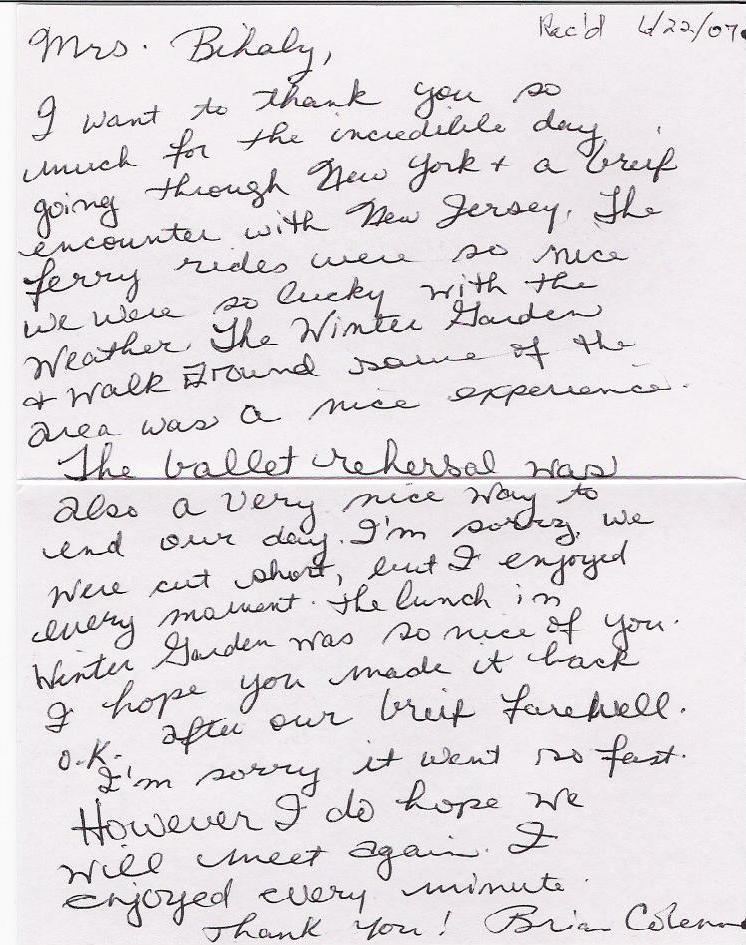 Rec'd 6/22/07
Mrs. Bihaly,
I want to thank you so
much for the incredible day
going through New York + a breif
encounter with New Jersey. The
ferry rides were so nice
we were so lucky with the
Weather. The Winter Garden
+ Walk Around some of the
area was a nice experience.
The ballet rehersal was
also a very nice way to
end our day. I'm sorry, we
were cut short, but I enjoyed
every moment. the lunch in
Winter Garden was so nice of you.
I hope you made it back
O.K. after our breif farewell.
I'm sorry it went so fast.
However I do hope we
will meet again. I
enjoyed every minute.
Thank You! Brian